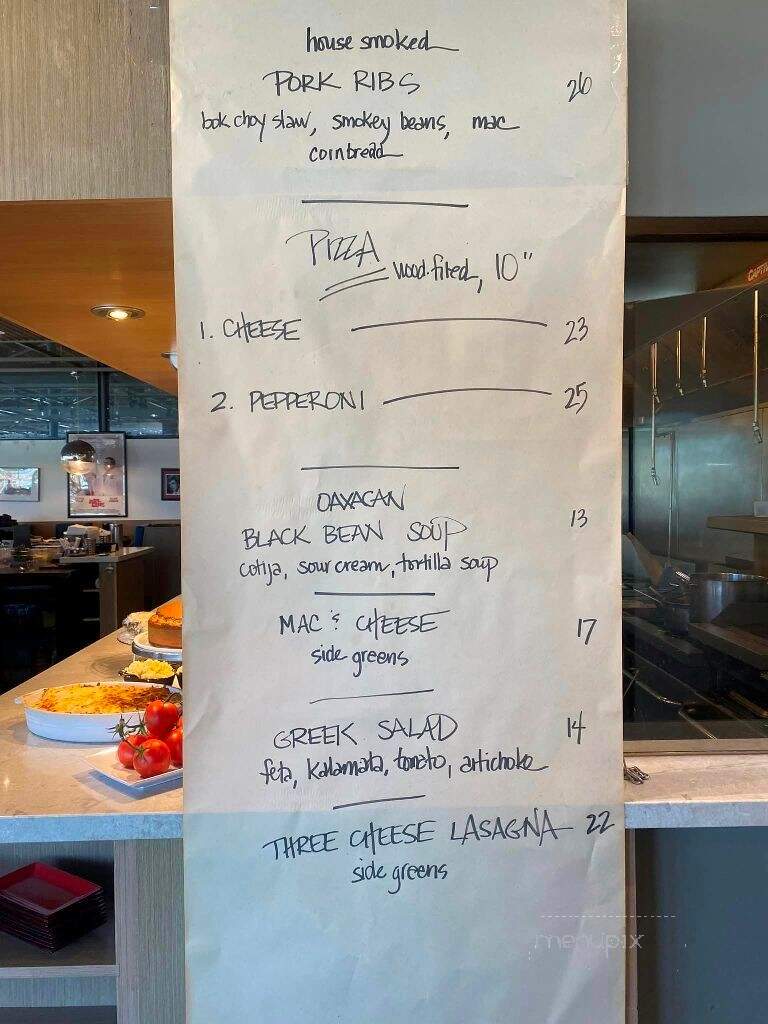 house smoked
PORK RIBS 26
bok choy slaw, smokey beans, mac
cornbread
PIZZA wood-fired, 10"
1. CHEESE 23
2. PEPPERONI 25
OAXACAN
BLACK BEAN SOUP 13
cotija, sour cream, tortilla soup
MAC & CHEESE 17
side greens
GREEK SALAD 14
feta, kalamata, tomato, artichoke
THREE CHEESE LASAGNA 22
side greens
menupix